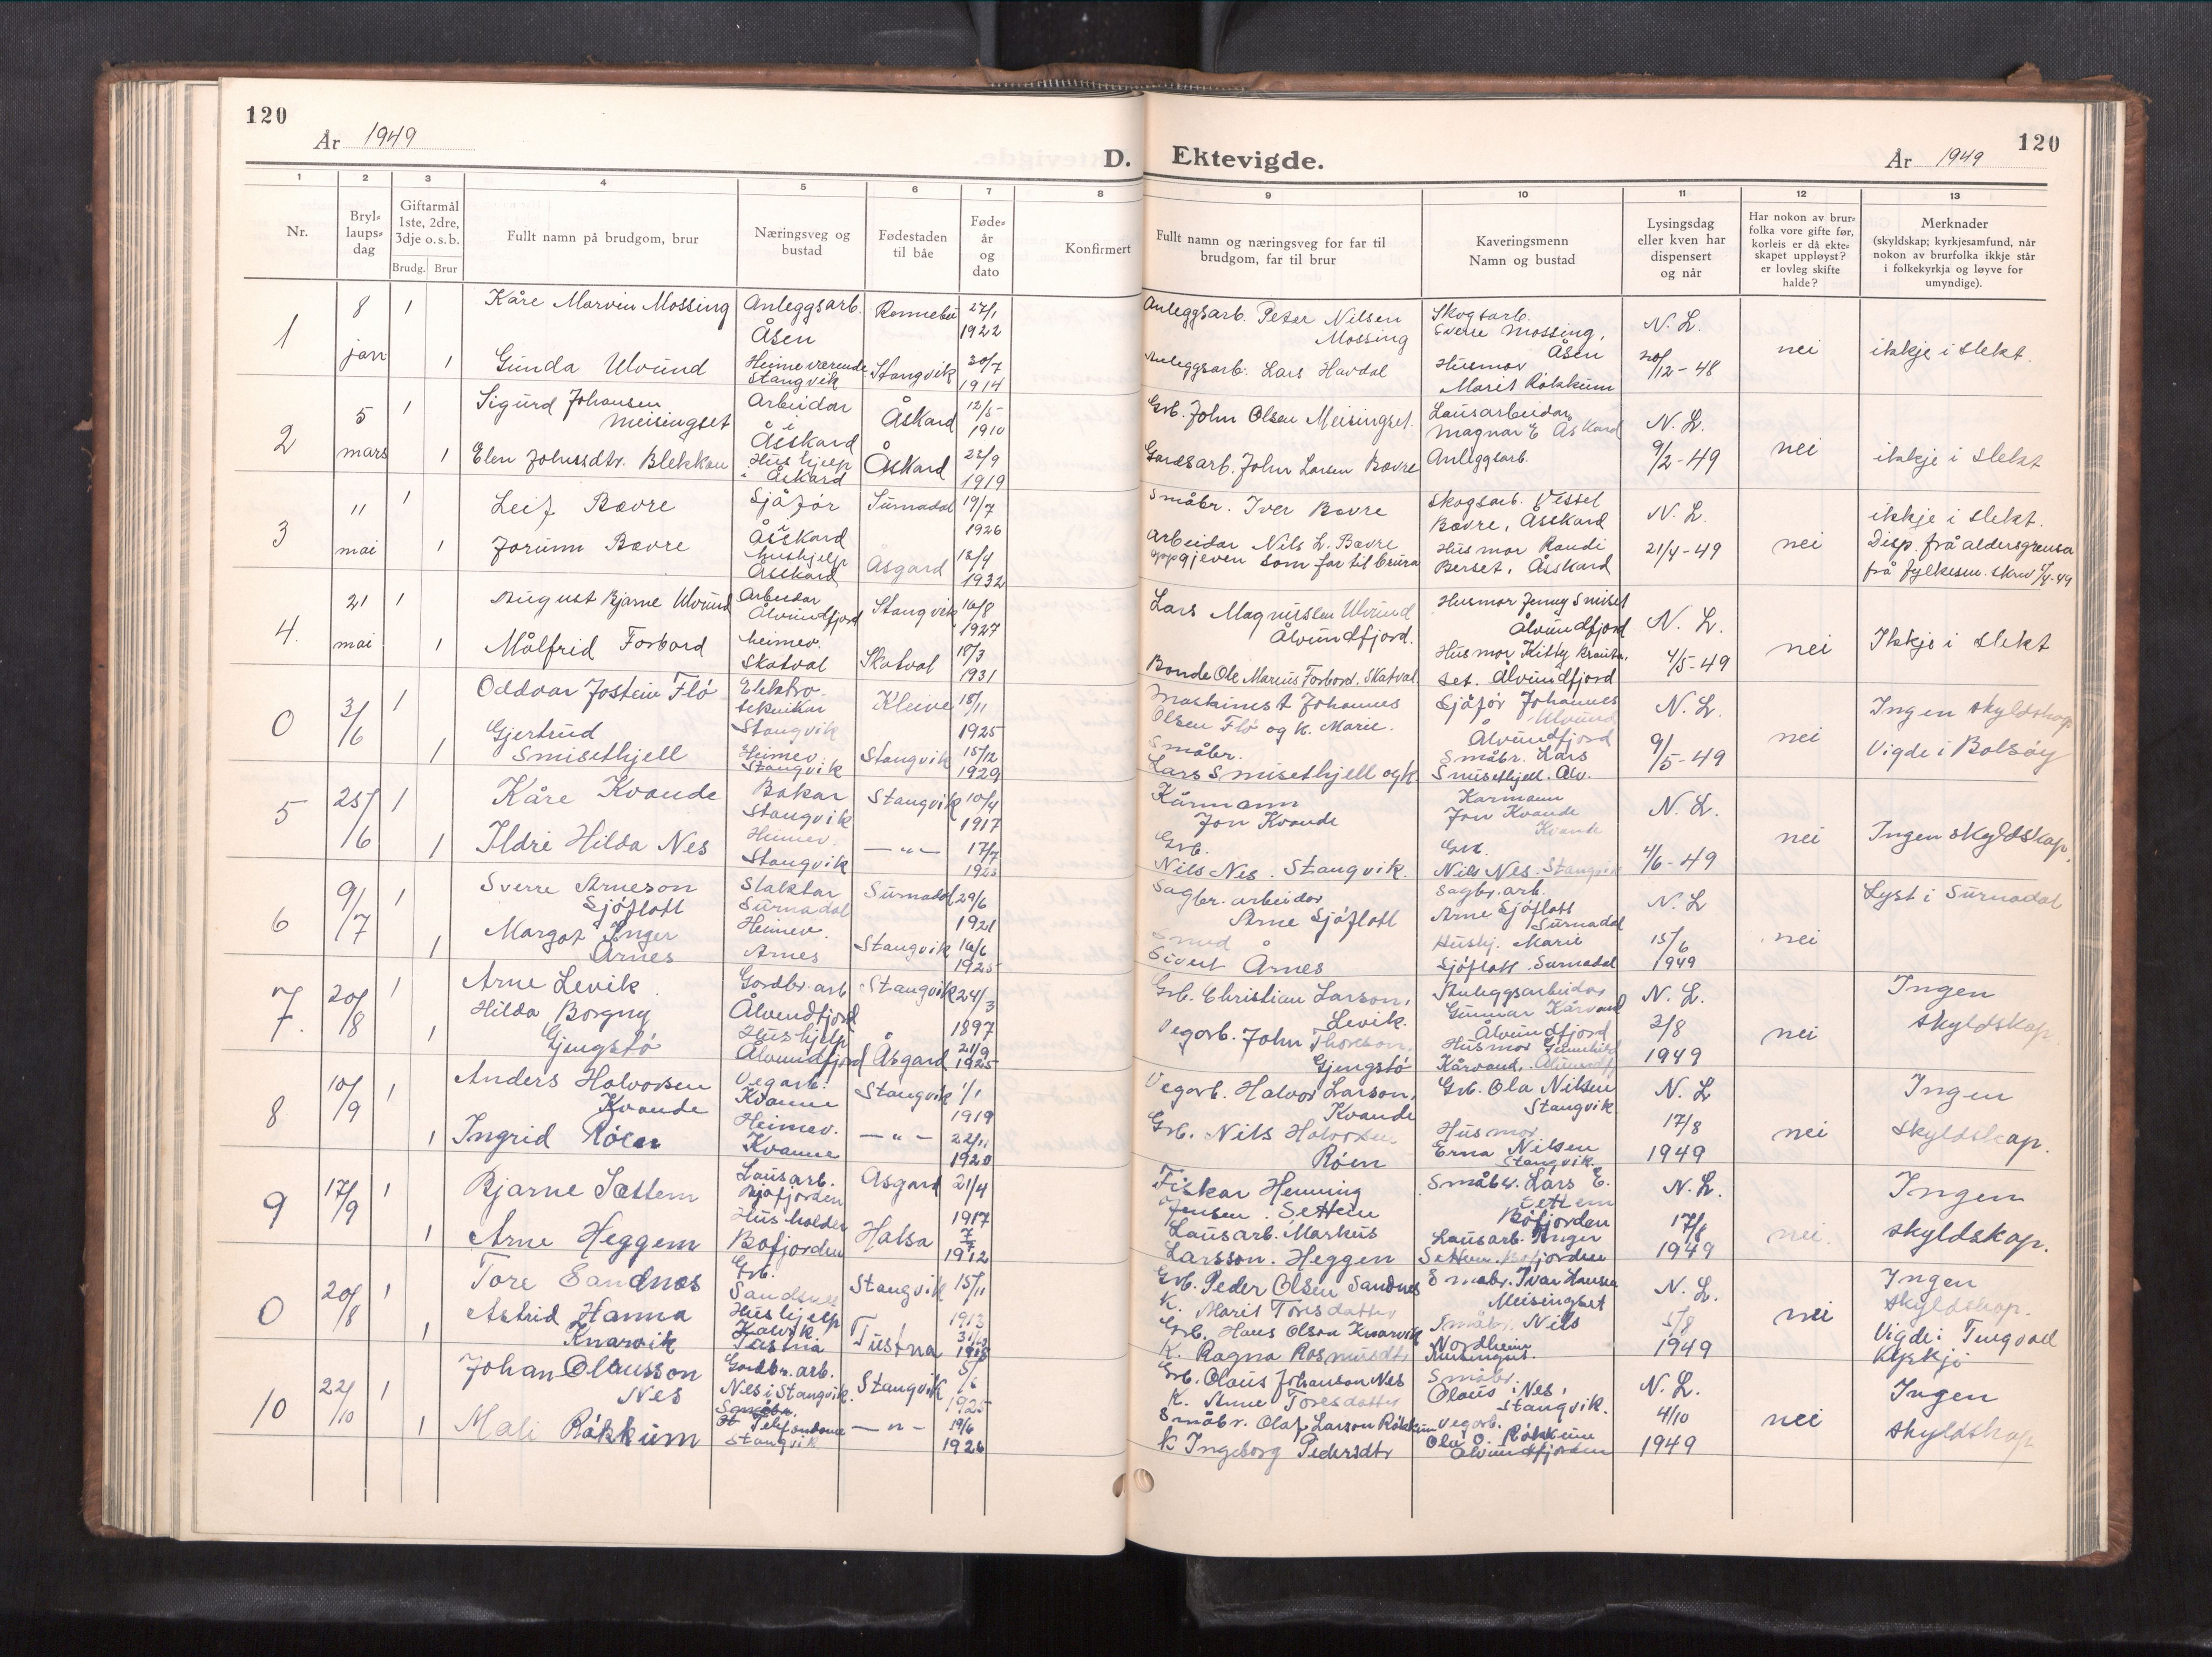 120
År 1949
D. Ektevigde.
År 1949
120
1 2 3 4 5 6 7 8 9 10 11 12 13
Nr.
Bryl-laups-dag
Giftarmål 1ste, 2dre, 3dje o.s.b.
Brudg. Brur
Fullt namn på brudgom, brur
Næringsveg og bustad
Fødestaden til båe
Føde-år og dato
Konfirmert
Fullt namn og næringsveg for far til brudgom, far til brur
Kaveringsmenn Namn og bustad
Lysingsdag eller kven har dispensert og når
Har nokon av brur-folka vore gifte før, korleis er då ekte-skapet uppløyst? er lovleg skifte halde?
Merknader (skyldskap; kyrkjesamfund, når nokon av brurfolka ikkje står i folkekyrkja og løyve for umyndige).
1 8 jan 1 Kåre Marvin Mossing Anleggsarb. Åsen Rennebu 27/1 1922 Anleggsarb. Peter Nilsen Mossing Skogsarb. Sverre Mossing, Åsen N. L.
1 Gunda Ulvund Heimeverende Stangvik Stangvik 30/7 1914 Anleggsarb. Lars Havdal Husmor Marit Røkkum 20/12-48 nei ikkje i slekt.
2 5 mars 1 Sigurd Johansen Meisingset Arbeidar Åsskard Åskard 12/5 1910 Grb. John Olsen Meisingset. Lausarbeidar Magnar E Åskard N. L.
1 Elen Johnsdtr. Blekkan Hushjelp i Åskard Åskard 22/9 1919 Gardsarb. John Larsen Bævre Anleggsarb. 9/2-49 nei ikkje i slekt
3 11 mai 1 Leif Bævre Sjåfør Åsskard Surnadal 19/7 1926 Småbr. Iver Bævre Skogsarb. Bævre, Åsskard N. L. ikkje i slekt.
1 Jorunn Bævre hushjelp Åsskard Åsgard 18/4 1932 Arbeidar Nils L. Bævre oppgjeven som far til brura Husmor Randi Berset, Åsskard 21/4-49 nei Disp. frå aldersgrensa frå fylkesm. skriv
4. 21 mai 1 August Bjarne Ulvund Arbeidar Ålvundfjord Stangvik 16/8 1927 Lars Magnussen Ulvund Ålvundfjord. Husmor Jenny Smiset Ålvundfjord N. L.
1 Målfrid Forbord heimev. Skatval Skatval 18/3 1931 Bonde Ole Marius Forbord. Skatval. Husmor Kitty Ålvundfjord 4/5-49 nei Ikkje i slekt
0 3/6 1 Oddvar Jostein Flø Elektroteknikar Stangvik Kleive 18/11 1925 Maskinist Johannes Olsen Flø og k. Marie. Sjåfør Johannes Ulvund Ålvundfjord N. L. Ingen skyldskap
1 Gjertrud Smisethjell Heimev. Stangvik Stangvik 15/12 1929 Småbr. Lars Smisethjell og k. Småbr. Lars Smisethjell. Ålv. 9/5-49 nei Vigde i Bolsøy
5 25/6 1 Kåre Kvande Bakar Stangvik Stangvik 10/4 1917 Kårmann Jon Kvande Karmann Jon Kvande Kvande N. L.
1 Ildri Hilda Nes Heimev. Stangvik — " — 17/7 Grb. Nils Nes. Stangvik. Grb. Nils Nes. Stangvik 4/6-49 nei Ingen skyldskap.
6 9/7 1 Sverre Arneson Sjøflott Slaktar Surnadal Surnadal 29/6 1921 Sagbr. arbeidar Arne Sjøflott Sagbr. arb. Arne Sjøflott Surnadal N. L Lyst i Surnadal
1 Margot Inger Årnes Heimev. Årnes Stangvik 16/6 1925 Smed Sivert Årnes Hushj. Marie Sjøflott. Surnadal 15/6 1949 nei
7. 20/8 1 Arne Levik Gardbr. arb Ålvundfjord Stangvik 24/3 1897 Grb. Christian Larson, Levik. Anleggsarbeidar Gunnar Kårvand Ålvundfjord N. L. Ingen
1 Hilda Borgny Gjengstø Hushjelp Ålvundfjord Åsgard 21/9 1925 Vegarb. John Thoreson, Gjengstø Husmor Gunnhild Kårvand. 3/8 1949 nei skyldskap
8 10/9 1 Anders Halvorsen Kvande Vegarb. Kvanne Stangvik 1/1 1919 Vegarb. Halvor Larson, Kvande Grb. Ola Nilsen Stangvik N. L Ingen
1 Ingrid Røen Heimev. Kvanne — " — 22/11 1920 Grb. Nils Halvorsen Røen Husmor Erna Nilsen Stangvik. 17/8 1949 nei skyldskap.
9 17/9 1 Bjarne Sættem Lausarb. Bøfjorden Åsgard 21/4 1917 Fiskar Henning Jensen. Settem Småbr. Lars E. Settem Bøfjorden N. L. Ingen
1 Arne Heggem Husholder Bøfjorden Halsa 1912 Lausarb. Markus Larsson. Heggen Lausarb. Inger Settem. Bøfjorden 17/8 1949 nei. skyldskap.
0 20/8 1 Tore Sandnes Grb. Sandnes Stangvik 15/11 1913 Grb. Peder Olsen Sandnes K. Marit Toresdatter Småbr. Ivar Hansen Meisingset N. L. Ingen skyldskap.
1 Astrid Hanna Knarvik Hushjelp Tustna Tustna Grb. Hans Olson Knarvik K. Ragna Rasmusdtr Småbr. Nils Nordheim Meisingset. 5/8 1949 nei Vigde i Tingvoll Kyrkje
10 22/10 1 Johan Olausson Nes Gardbr. arb. Nes i Stangvik. Stangvik 1925 Grb. Olaus Johanson Nes K. Anne Toresdatter Småbr. Olaus Nes, Stangvik. N. L. Ingen
1 Mali Røkkum Stangvik — " — 19/6 1926 Småbr. Olaf Larson Røkkum K Ingeborg Pedersdtr Vegarb. Ola O. Røkkum Ålvundfjorden 4/10 1949 nei skyldskap